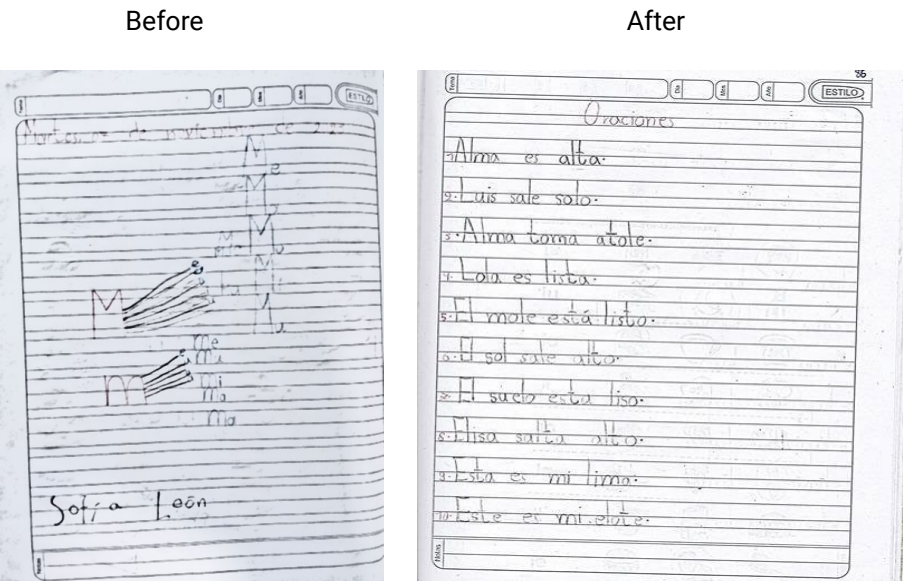 Before
After
ESTILO
Martes, 02 de noviembre de 2022
M
e
M
M
M
M
M
me
m
mi
ma
Sofía León
86
Tema
Día
Mes
Año
ESTILO
Oraciones
1. Alma es alta.
2. Luis sale solo.
3. Alma toma atole.
4. Lola es lista.
5. El mole está listo.
6. El sol sale alto.
7. El suelo esta liso.
8. Elisa salta alto.
9. Esta es mi lima.
10. Este es mi elote.
Notas